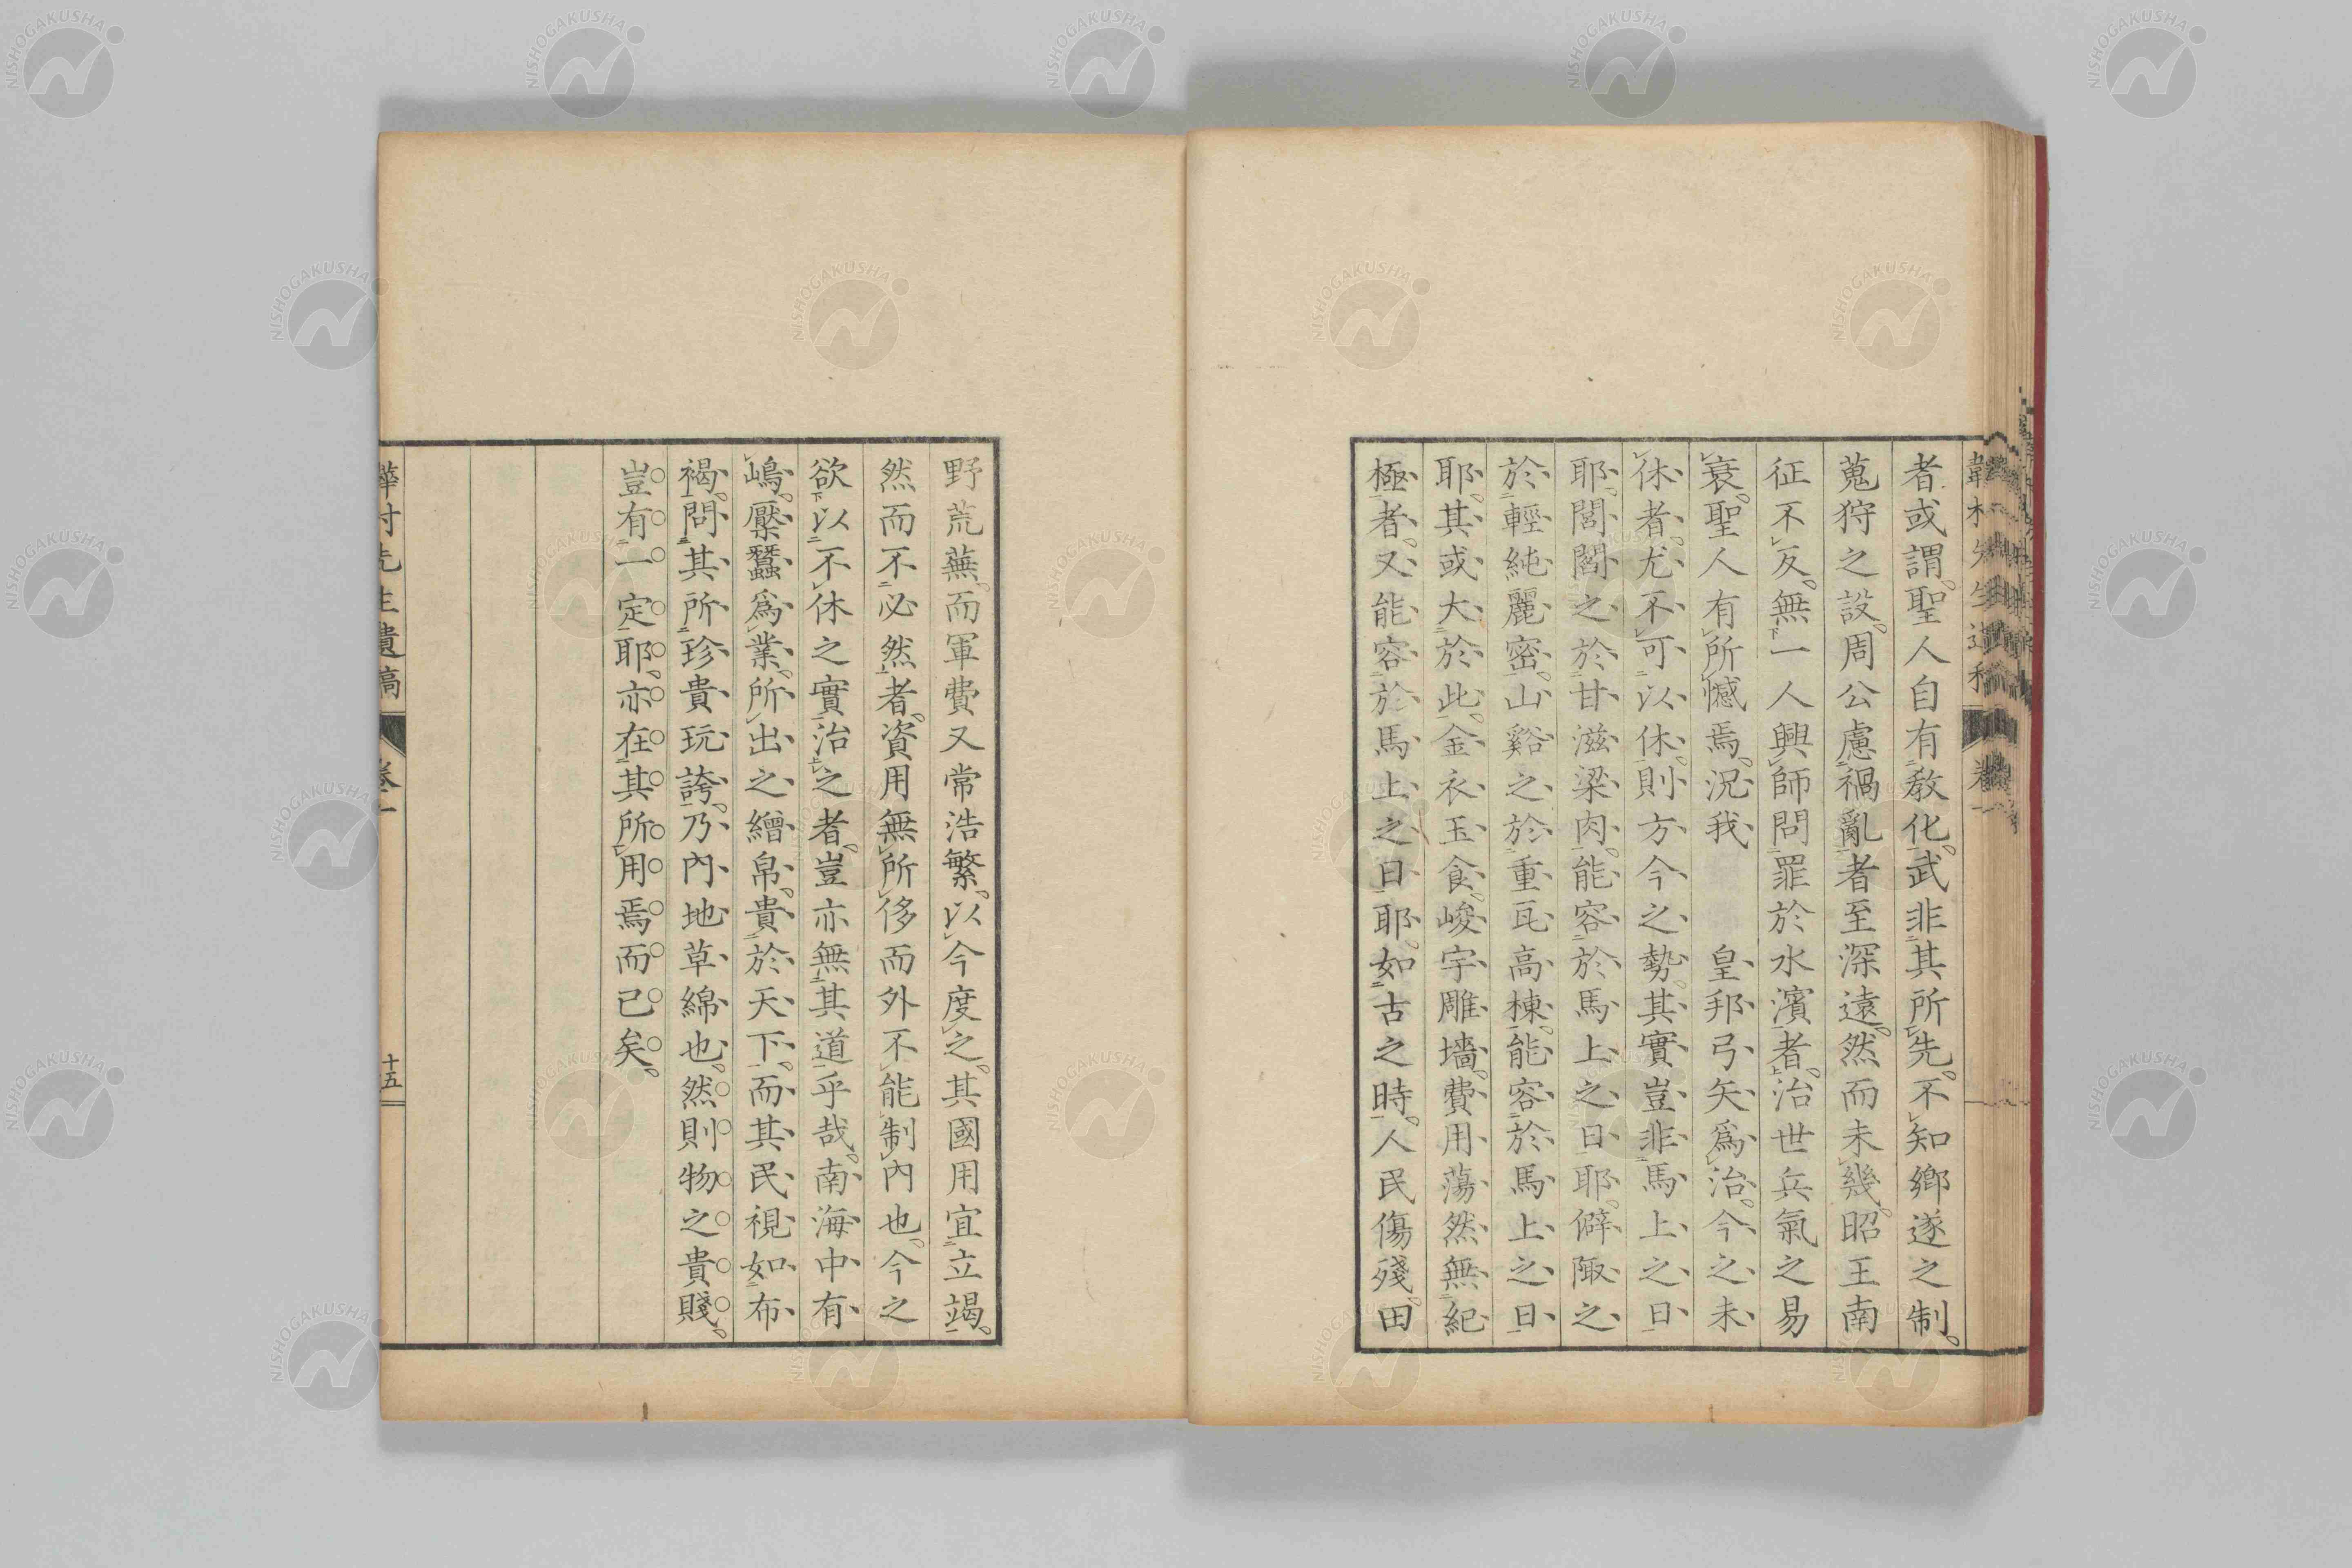 者或謂聖人自有教化武非其所先不知鄉遂之制
蒐狩之設周公慮禍亂者至深遠然而未幾昭王南
征不反無一人興師問罪於水濱者治世兵氣之易
衰聖人有所憾焉況我　皇邦弓矢爲治今之未
休者尤不可以休則方今之勢其實豈非馬上之日
耶閭閻之於甘滋梁肉能容於馬上之日耶僻陬之
於輕純麗密山谿之於重瓦高棟能容於馬上之日
耶其或大於此金衣玉食峻宇雕墻費用蕩然無紀
極者又能容於馬上之日耶如古之時人民傷殘田
野荒蕪而軍費又常浩繁以今度之其國用宜立竭
然而不必然者資用無所侈而外不能制內也今之
欲以不休之實治之者豈亦無其道乎哉南海中有
嶋檿蠶爲業所出之繒帛貴於天下而其民視如布
褐問其所珍貴玩誇乃內地草綿也然則物之貴賤
豈有一定耶亦在其所用焉而已矣
韡村先生遺稿
卷一
十五
NISHOGAKUSHA